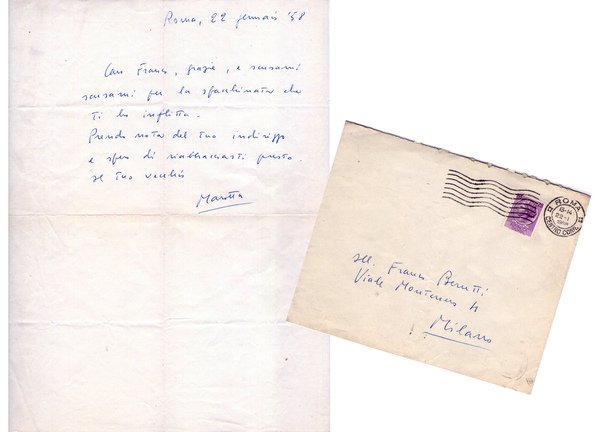 Roma, 22 gennaio '58
Caro Franco, grazie, e scusami
scusami per la sfacchinata che
ti ho inflitta.
Prendo nota del tuo indirizzo
e spero di riabbracciarti presto.
Il tuo vecchio
Marotta
ROMA
CENTRO CORR.
Sill. Franco Berutti
Viale Montenero 4
Milano